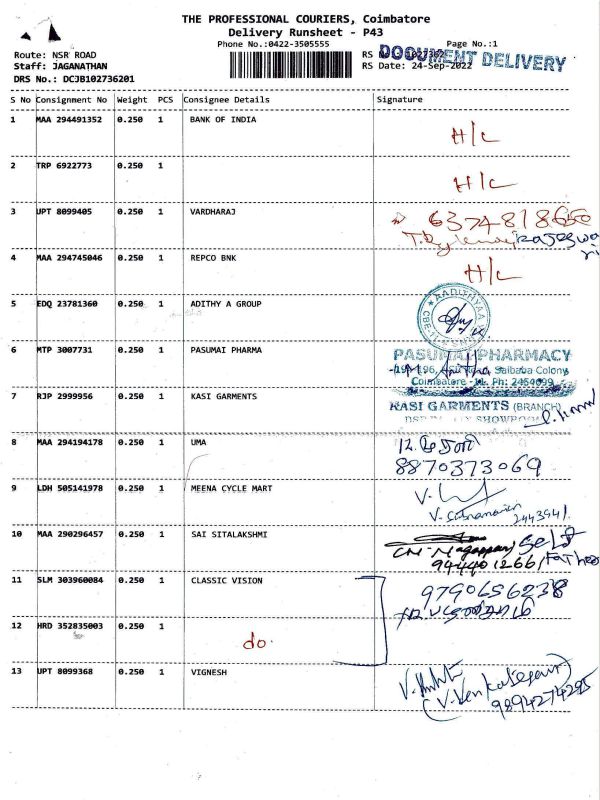 THE PROFESSIONAL COURIERS, Coimbatore
Delivery Runsheet - P43
Phone No.:0422-3505555
Page No.:1
Route: NSR ROAD
Staff: JAGANATHAN
DRS No.: DCJB102736201
RS
DOCUMENT DELIVERY
RS Date: 24-Sep-2022
S No Consignment No Weight PCS Consignee Details Signature
1 MAA 294491352 0.250 1 BANK OF INDIA H/c
2 TRP 6922773 0.250 1 H/c
3 UPT 8099405 0.250 1 VARDHARAJ 6374818650
4 MAA 294745046 0.250 1 REPCO BNK H/c
5 EDQ 23781360 0.250 1 ADITHY A GROUP
AADITHYAA
6 MTP 3007731 0.250 1 PASUMAI PHARMA
PASUMAI PHARMACY
Saibaba Colony
Coimbatore - 11. Ph: 2454699
7 RJP 2999956 0.250 1 KASI GARMENTS
KASI GARMENTS (BRANCH)
SHOWROOM
8 MAA 294194178 0.250 1 UMA
8870373069
9 LDH 505141978 0.250 1 MEENA CYCLE MART
2443941
10 MAA 290296457 0.250 1 SAI SITALAKSHMI
Self
9444012661 Father
11 SLM 303960084 0.250 1 CLASSIC VISION
9790656238
12 HRD 352835003 0.250 1 do.
13 UPT 8099368 0.250 1 VIGNESH
(V. Venkatesan)
9894274295